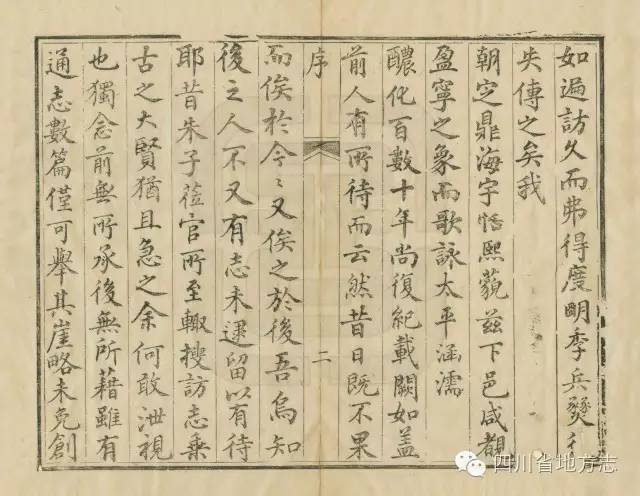 如遍訪久而弗得度明季兵燹
失傳之矣我
朝定鼎海宇恬熙藐茲下邑咸覩
盈寧之象而歌詠太平涵濡
醲化百數十年尚復紀載闕如蓋
前人有所待而云然昔日既不果
序
二
而俟於今今又俟之於後吾烏知
後之人不又有志未逮留以有待
耶昔朱子莅官所至輙搜訪志乗
古之大賢猶且急之余何敢泄視
也獨念前無所承後無所藉雖有
通志數篇僅可舉其崖略未免創
四川省地方志